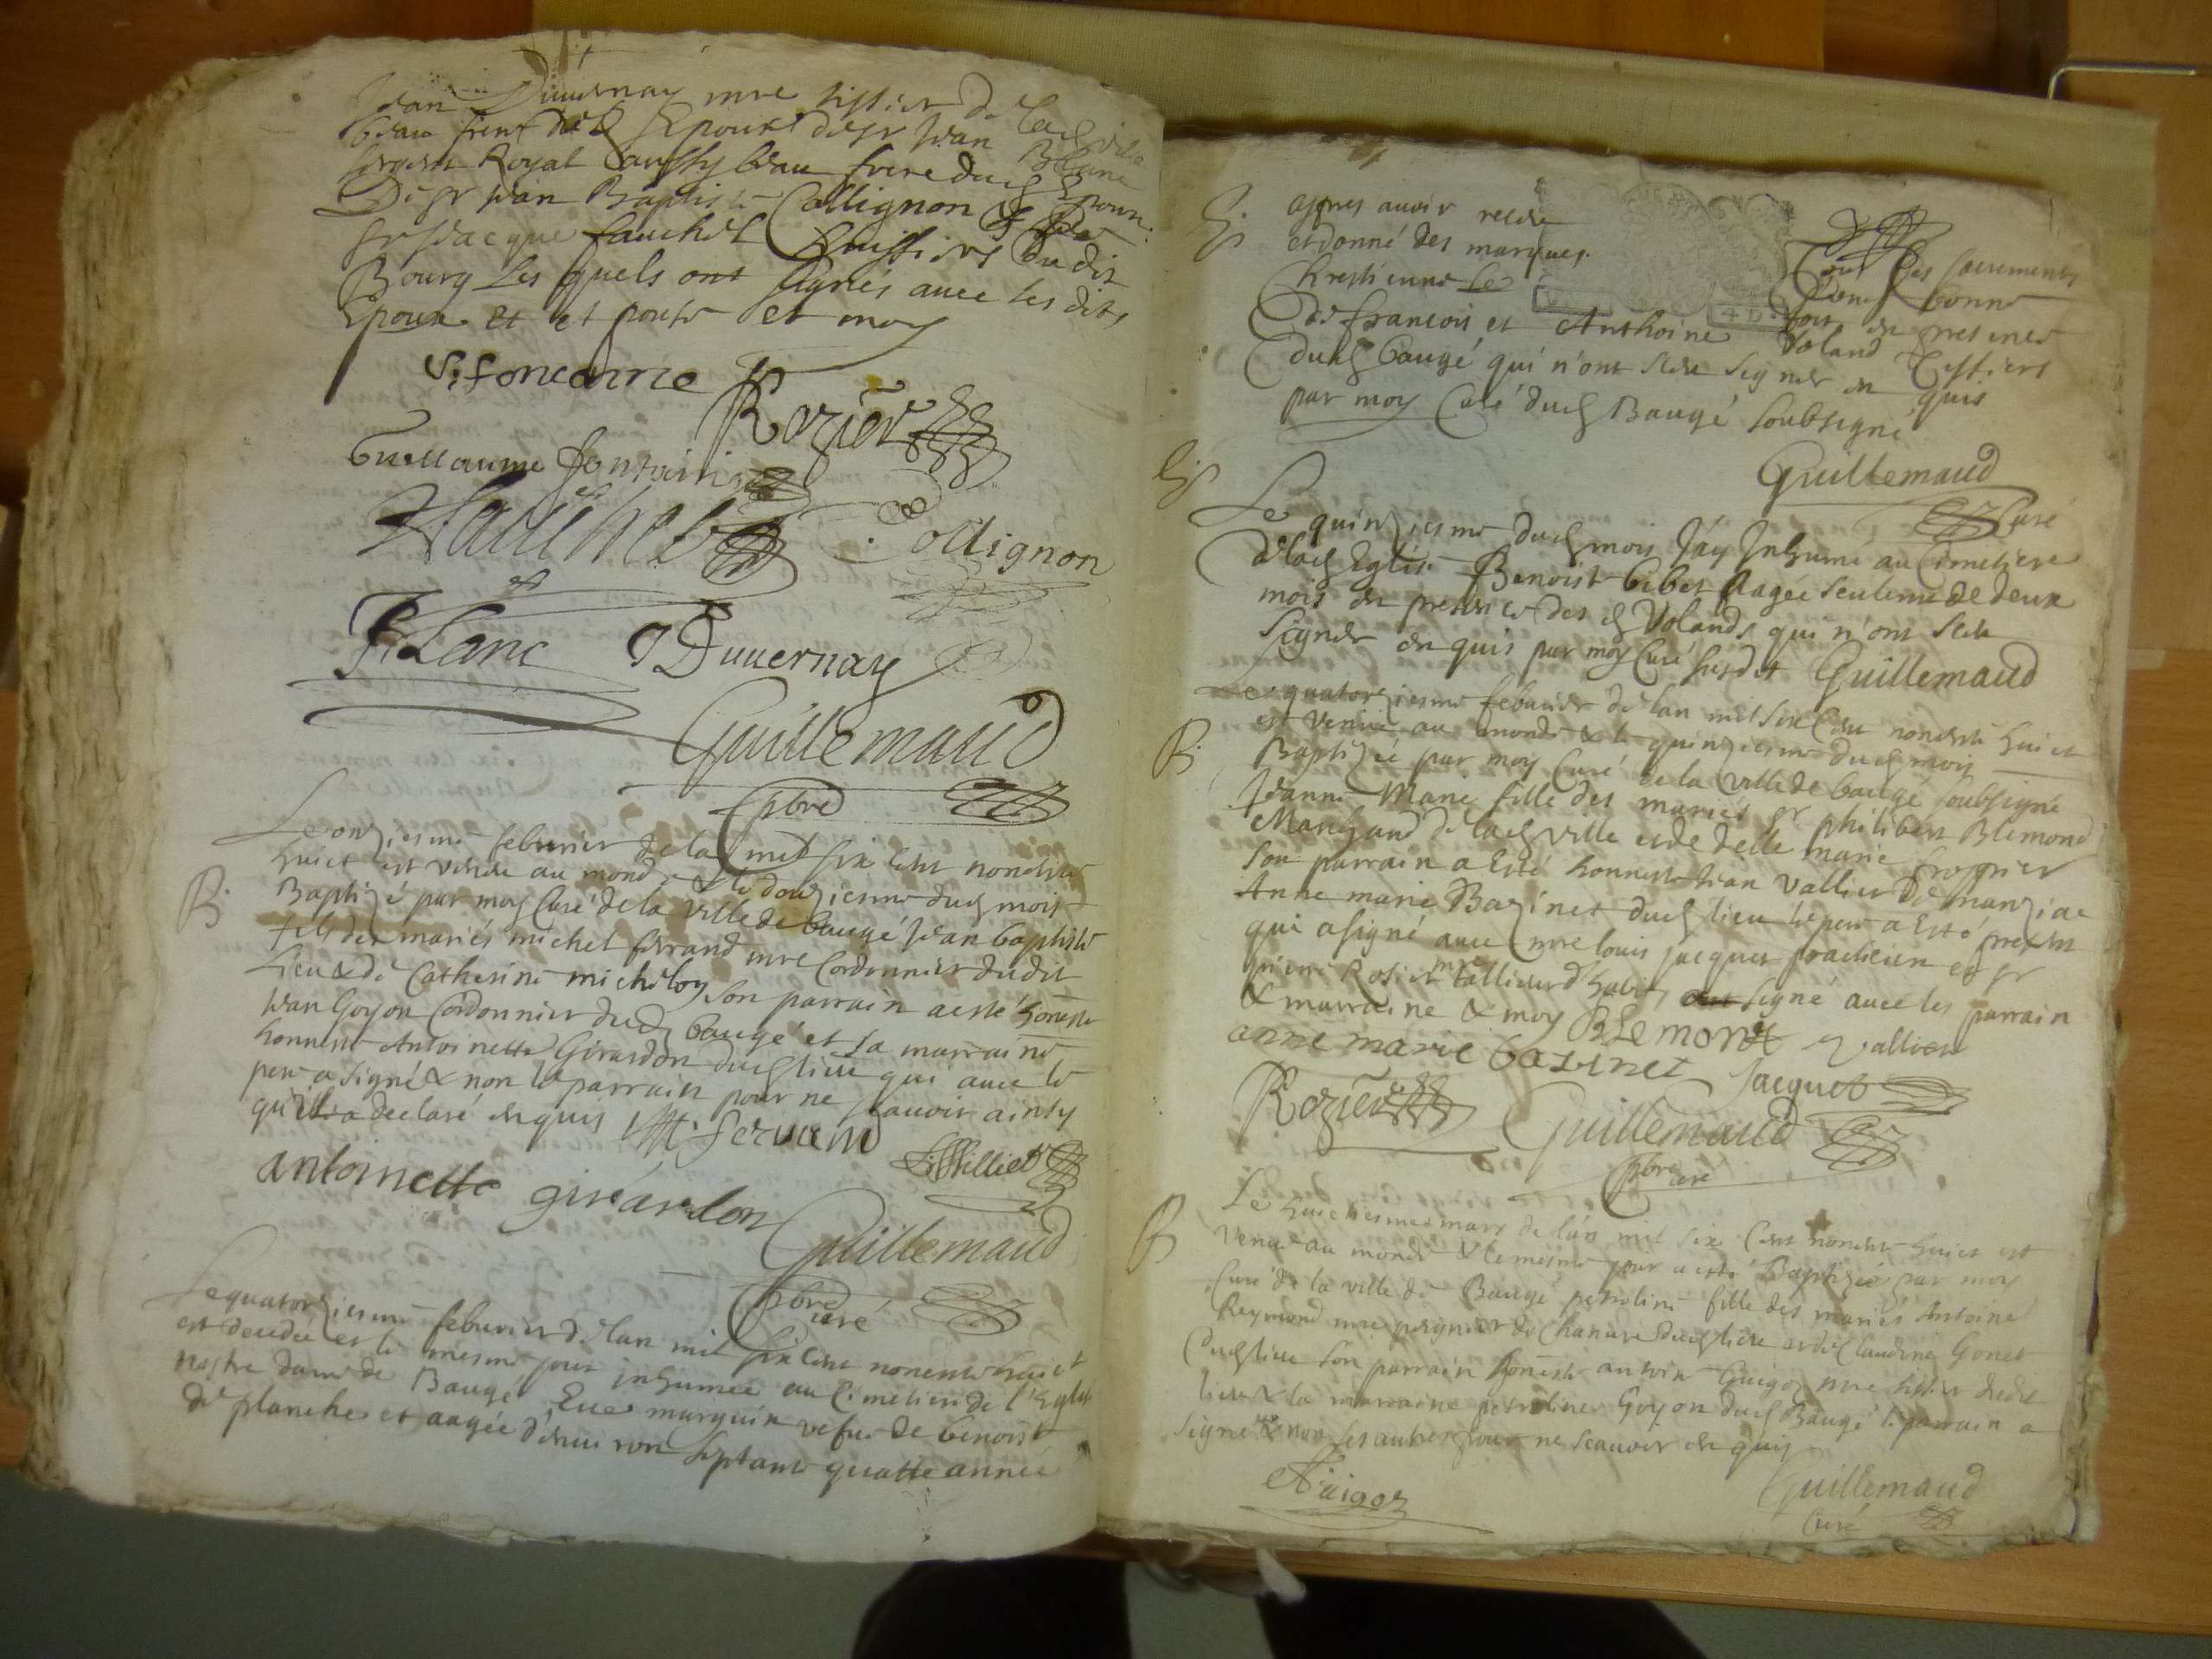 Jean Duuernay mre tissier de lad ville
beau frere dud Epoux de sr Jean Blanc
sergent Royal aussy beau frere dud Epoux
De sr Jean Baptiste Collignon & de
sr Jacque fauchet huissiers dudit
Bourg Les quels ont signés auec les dits
Epoux et et moy
Rozier
Guillaume fontaine
fauchet Collignon
Blanc J Duuernay
Guillemaud
pbre
Le onziesme feburier de lan mil six cent nonente
huict est venu au monde & le douziesme dud mois
B.
Baptizé par moy Curé de la ville de baugé Jean baptiste
fils des mariés michel ferrand mre Cordonnier dudit
lieu & de Catherine micheloy son parrain a esté honneste
Jean Goyon Cordonnier dud baugé et sa marraine
honneste Antoinette Girardon dud lieu qui auec le
pere a signé & non le parrain pour ne scauoir ainsy
qu'il a declaré enquis
antoinette girardon
Guillemaud
pbre curé
Le quatorziesme feburier de lan mil six cent nonente huict
est decedée et le mesme jour inhumée au Cimetiere de l'Eglise
nostre dame de Baugé Eue marguin vefue de benoist
de planche et aagée d'enuiron septante quatte année
apres auoir receu tous les sacrements
et donné des marques d'une bonne
Chrestienne en presence
de francois et Anthoine Voland tissiers
dud baugé qui n'ont sceu signer enquis
par moy Curé dud Baugé soubsigné
Guillemaud
Curé
Le quinziesme dud mois J'ay Inhumé au Cimetiere
de lad Eglise Benoist bibet aagée seulement de deux
mois en presence des d Volands qui n'ont sceu
signer enquis par moy Curé susdit Guillemaud
Le quatorziesme feburier de lan mil six Cent nonente huict
est venue au monde & le quinziesme dud mois
B.
Baptizée par moy Curé de la ville de baugé soubsigné
Jeanne Marie fille des mariés sr philibert Blemond
Marchand de lad ville et de delle marie
son parrain a Esté honneste Jean Vallier de manziac
Anne marie Bazinet dud lieu le pere a Esté present
qui a signé auec mre louis jacquet praticien et sr
pierre Rosier mre tallieur d'habits signé auec les parrain
& marraine & moy BLemond Vallier
anne marie basinet Jacquet
Rozier Guillemaud
pbre curé
Le huictiesme mars de l'an mil six Cent nonente huict est
B
venue au monde & le mesme jour a esté Baptizée par moy
Curé de la ville de Baugé petroline fille des mariés Antoine
Reymond mre peigneur de Chanure dud lieu et de Claudine Gonet
dud lieu son parrain honneste antoine Guigoz mre tissier dudit
lieu & la marraine petroline Goyon dud Baugé le parrain a
signé & non les autres pour ne scauoir enquis
AGuigoz Guillemaud
Curé